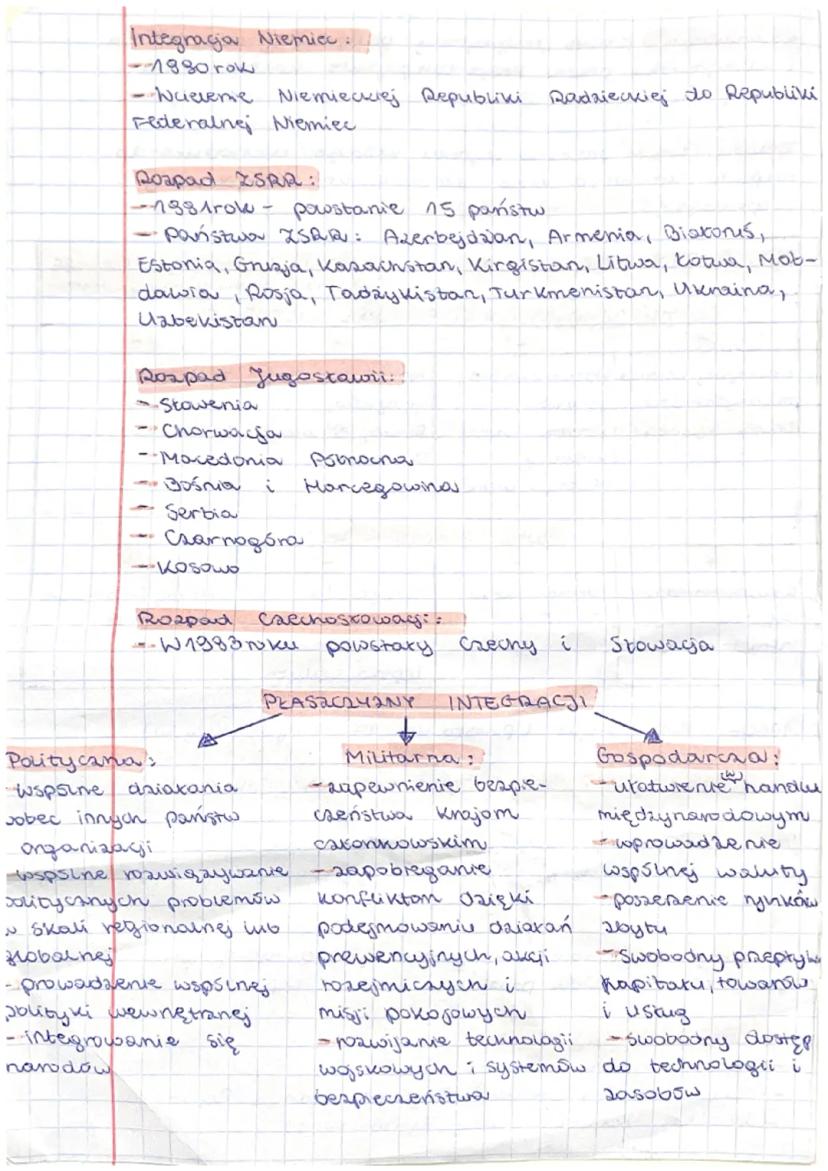 Integracja Niemiec:
- 1990 rok
- Wcielenie Niemieckiej Republiki Radzieckiej do Republiki
Federalnej Niemiec
Rozpad ZSRR:
- 1991 rok - powstanie 15 państw
- Państwa ZSRR: Azerbejdżan, Armenia, Białoruś,
Estonia, Gruzja, Kazachstan, Kirgistan, Litwa, Łotwa, Moł-
dawia, Rosja, Tadżykistan, Turkmenistan, Ukraina,
Uzbekistan
Rozpad Jugosławii:
- Słowenia
- Chorwacja
- Macedonia Północna
- Bośnia i Harcegowina
- Serbia
- Czarnogóra
- Kosowo
Rozpad Czechosłowacji:
- W 1993 roku powstały Czechy i Słowacja
PŁASZCZYZNY INTEGRACJI
Polityczna:
- wspólne działania
wobec innych państw
organizacji
- wspólne rozwiązywanie
politycznych problemów
w skali regionalnej lub
globalnej
- prowadzenie wspólnej
polityki wewnętrznej
- integrowanie się
narodów
Militarna:
- zapewnienie bezpie-
czeństwa krajom
członkowskim
- zapobieganie
konfliktom dzięki
podejmowaniu działań
prewencyjnych, akcji
rozejmiczych i
misji pokojowych
- rozwijanie technologii
wojskowych i systemów
bezpieczeństwa
Gospodarcza:
- ułatwienie w handlu
międzynarodowym
- wprowadzenie
wspólnej waluty
- poszerzenie rynków
zbytu
- Swobodny przepływ
kapitału, towarów
i usług
- swobodny dostęp
do technologii i
zasobów